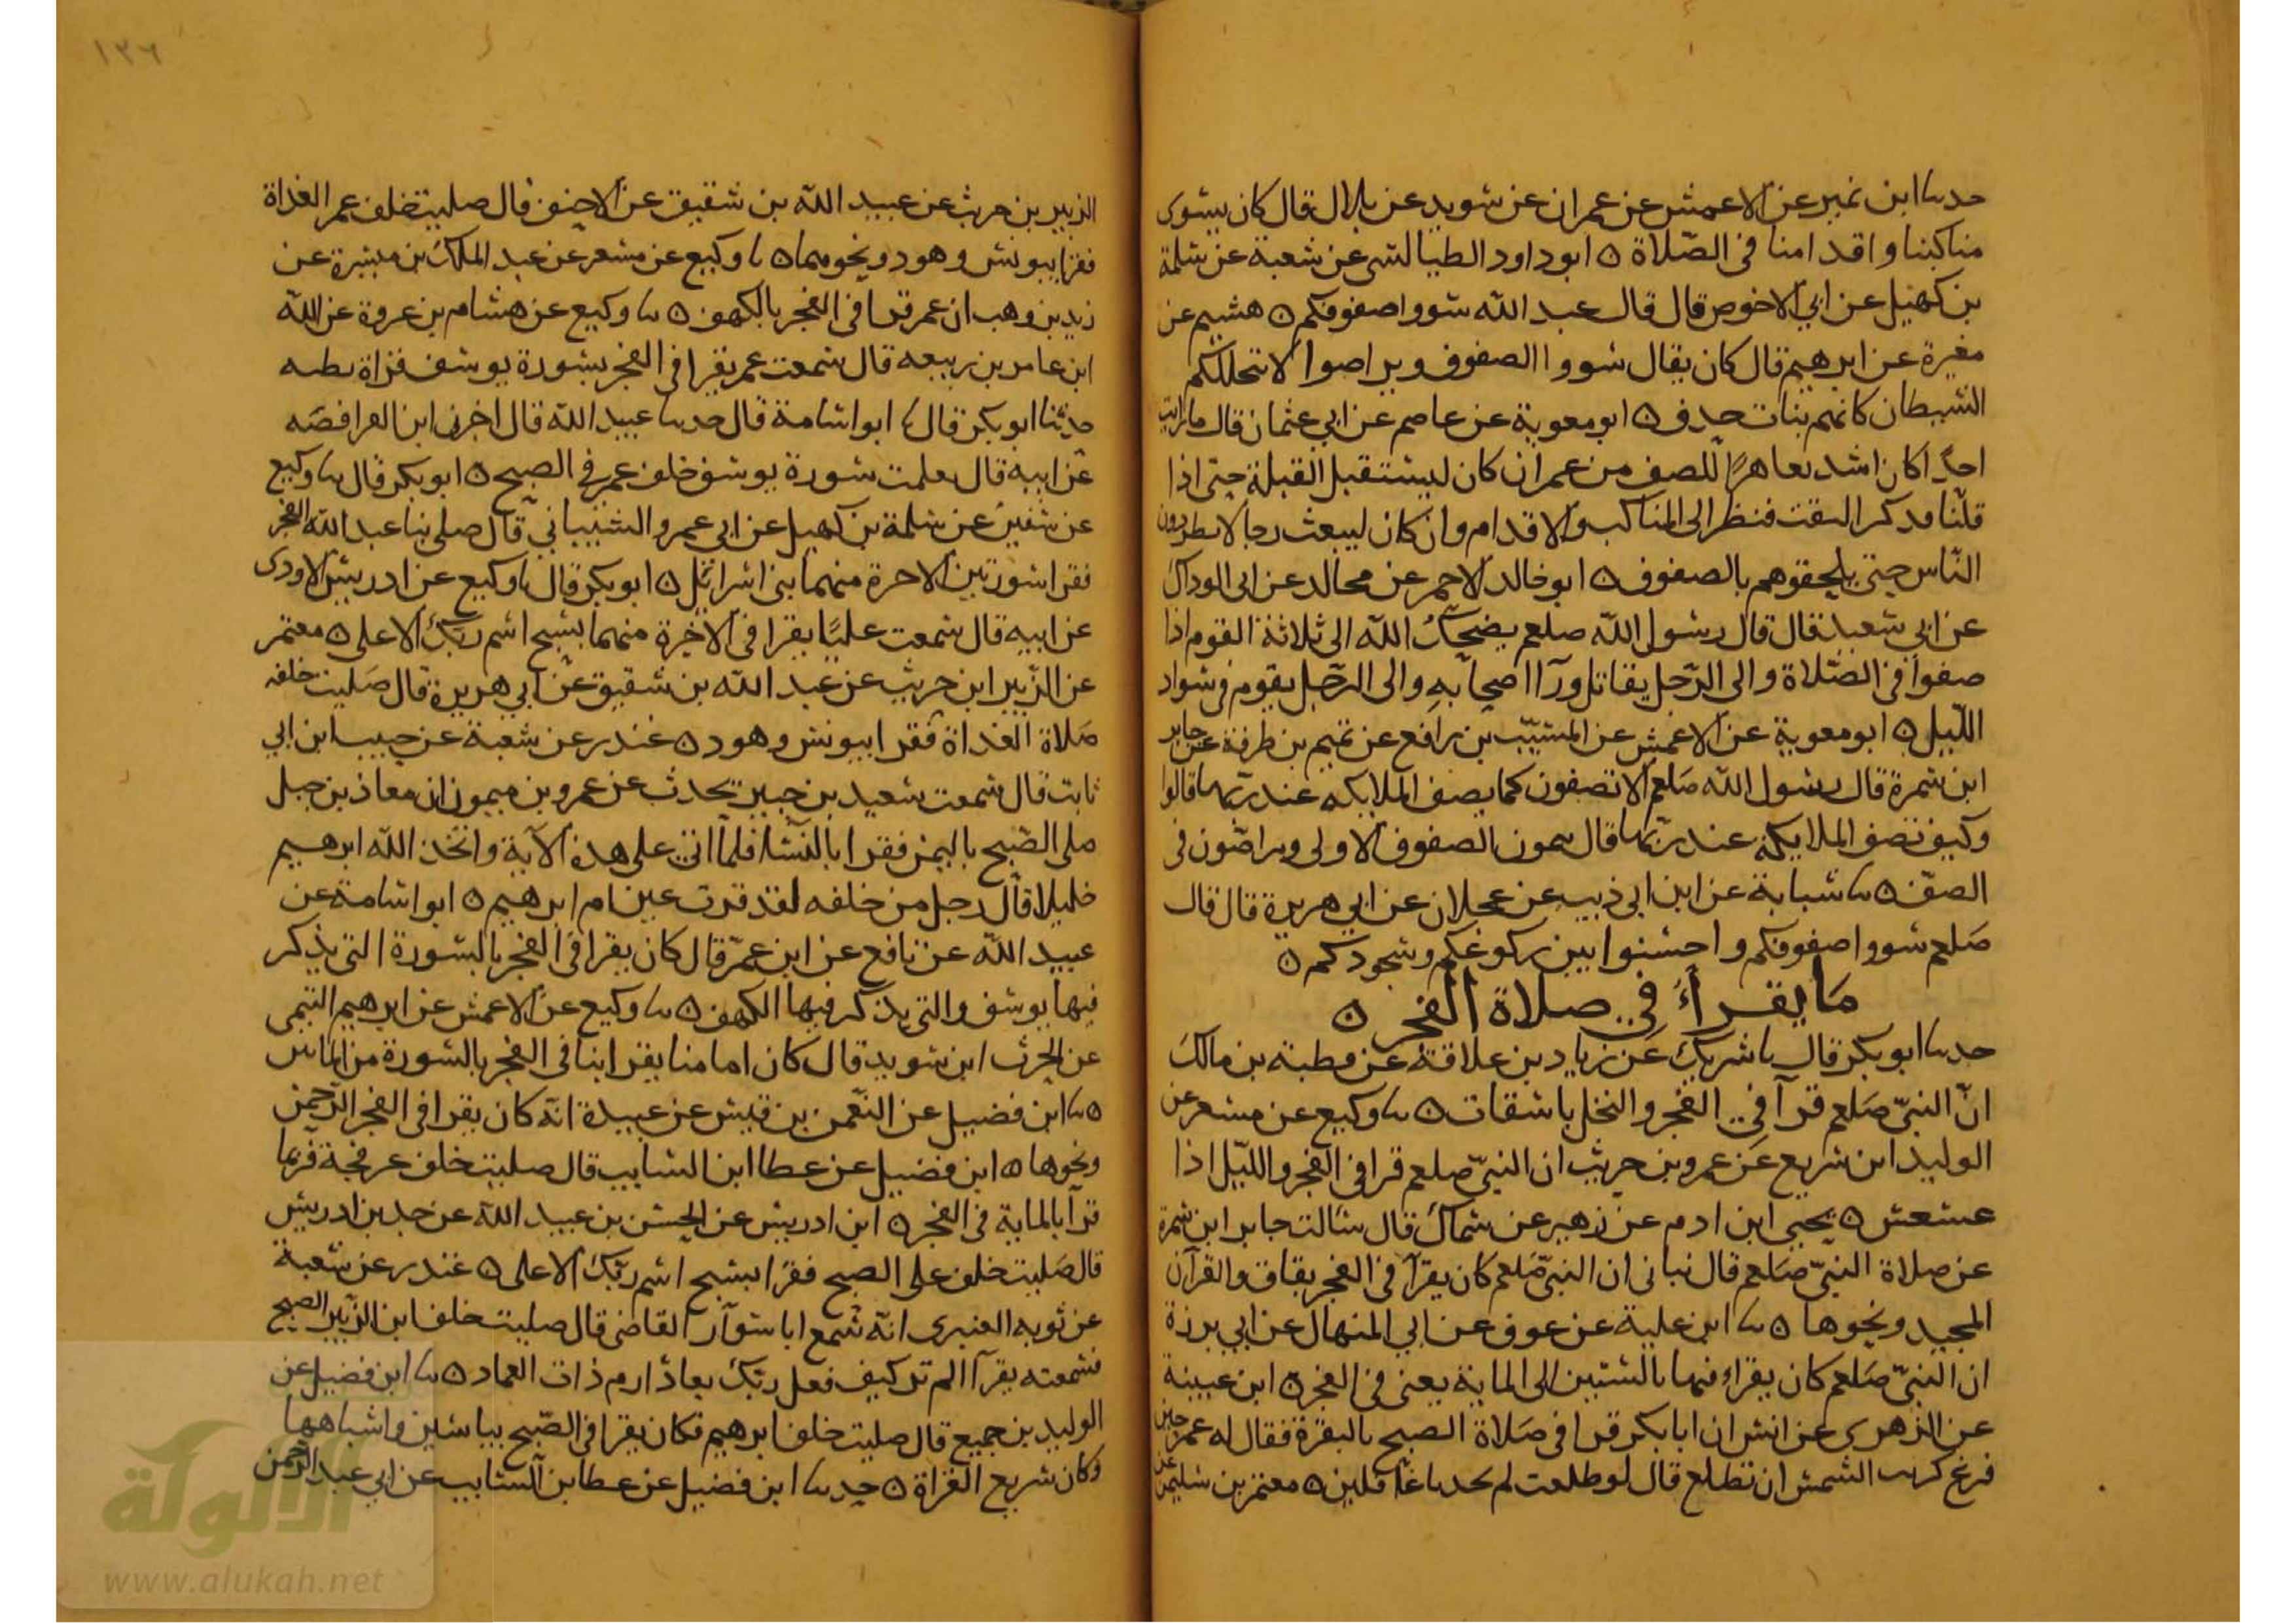 حدثنا ابن نمير عن الاعمش عن عمران عن سويد عن بلال قال كان يسوى
مناكبنا واقدامنا فى الصّلاة ٥ ابو داود الطيالسى عن شعبة عن سلمة
بن كهيل عن ابي الاحوص قال قال عبد الله سووا صفوفكم ٥ هشيم عن
مغيرة عن ابرهيم قال كان يقال سووا الصفوف وتراصوا لا تتخللكم
الشيطان كانهم بنات حذف ٥ ابو معوية عن عاصم عن ابي عثمان قال ما رايت
احدًا كان اشد تعاهدًا للصف من عمر ان كان ليستقبل القبلة حتى اذا
قلنا قد كبر التفت فنظر الى المناكب والاقدام وان كان ليبعث رجالا يطردون
النّاس حتى يلحقوهم بالصفوف ٥ ابو خالد الاحمر عن مجالد عن ابى الوداك
عن ابي سعيد قال قال رسول الله صلعم يضحك الله الى ثلاثة القوم اذا
صفوا فى الصّلاة والى الرّجل يقاتل ورآ اصحابه والى الرّجل يقوم فى سواد
اللّيل ٥ ابو معوية عن الاعمش عن المسيّب بن رافع عن تميم بن طرفة عن جابر
ابن سمرة قال رسول الله صلعم الا تصفون كما يصف الملايكه عند ربّها قالوا
وكيف تصف الملايكة عند ربّها قال يتمون الصفوف الاولى ويتراصّون فى
الصفّ ٥ ثنا شبابة عن ابن ابى ذيب عن عجلان عن ابي هريرة قال قال
صلعم سووا صفوفكم واحسنوا بين ركوعكم وسجودكم ٥
ما يقرأ في صلاة الفجر ٥
حدثنا ابو بكر قال نا شريك عن زياد بن علاقة عن قطبة بن مالك
انّ النبيّ صلعم قرآ في الفجر والنخل باسقات ٥ ثنا وكيع عن مسعر عن
الوليد ابن سريع عن عمرو بن حريث ان النبيّ صلعم قرا في الفجر والليل اذا
عسعس ٥ يحيى ابن ادم عن زهير عن سماك قال سالت جابر ابن سمرة
عن صلاة النبيّ صلعم قال نبانى ان النبيّ صلعم كان يقرآ فى الفجر بقاف والقرآن
المجيد ونحوها ٥ ثنا ابن علية عن عوف عن ابي المنهال عن ابي برزة
ان النبيّ صلعم كان يقراء فيها بالستين الى الماية يعنى فى الفجر ٥ ابن عيينة
عن الزهرى عن انس ان ابا بكر قرا فى صلاة الصبح بالبقرة فقال له عمر حين
فرغ كربت الشمس ان تطلع قال لو طلعت لم تجدنا غافلين ٥ معتمر بن سليمن عن
الزبير بن حريث عن عبيد الله بن شقيق عن الاحنف قال صليت خلف عمر الغداة
فقرا بيونس وهود ونحوهما ٥ نا وكيع عن مسعر عن عبد الملك بن ميسرة عن
زيد بن وهب ان عمر قرا فى الفجر بالكهف ٥ ثنا وكيع عن هشام بن عروة عن الله
ابن عامر بن ربيعه قال سمعت عمر يقرا فى الفجر بسورة يوسف قراة بطيه
حدثنا ابو بكر قال نا ابو اسامة قال حدثنا عبيد الله قال اخبرنى ابن الفرافصه
عن ابيه قال تعلمت سورة يوسف خلف عمر في الصبح ٥ ابو بكر قال ثنا وكيع
عن سفين عن سلمة بن كهيل عن ابي عمرو الشيباني قال صلى بنا عبد الله الفجر
فقرا سورتين الاخرة منهما بنى اسرائيل ٥ ابو بكر قال نا وكيع عن ادريس الاودى
عن ابيه قال سمعت عليًا يقرا فى الاخرة منهما بسبح اسم ربك الاعلى ٥ معتمر
عن الزّبير ابن حريث عن عبد الله بن شقيق عن ابي هريرة قال صليت خلفه
صلاة الغداة فقرا بيونس وهود ٥ غندر عن شعبة عن حبيب ابن ابي
ثابت قال سمعت سعيد بن جبير يحدث عن عمرو بن ميمون ان معاذ بن جبل
صلى الصّبح باليمن فقرا بالنسا فلما اتى على هذه الآية واتخذ الله ابرهيم
خليلا قال رجل من خلفه لقد قرت عين ام ابرهيم ٥ ابو اسامة عن
عبيد الله عن نافع عن ابن عمر قال كان يقرا فى الفجر بالسورة التى يذكر
فيها يوسف والتى يذكر فيها الكهف ٥ ثنا وكيع عن الاعمش عن ابرهيم التيمى
عن الحرث ابن سويد قال كان امامنا يقرا بنا فى الفجر بالسورة من المايتين
٥ ثنا ابن فضيل عن النعمن بن قيس عن عبيدة انه كان يقرا فى الفجر الرّحمن
ونحوها ٥ ابن فضيل عن عطا ابن السايب قال صليت خلف عرفجة فربما
قرآ بالماية فى الفجر ٥ ابن ادريس عن الحسن بن عبيد الله عن جد بن ادريس
قال صليت خلف على الصبح فقرا بسبح اسم ربّك الاعلى ٥ غندر عن شعبة
عن توبه العنبرى انه سمع ابا سوّار القاضى قال صليت خلف ابن الزّبير الصبح
فسمعته يقرآ الم تر كيف فعل ربّك بعاد ارم ذات العماد ٥ ثنا ابن فضيل عن
الوليد بن جميع قال صليت خلف ابرهيم فكان يقرا فى الصّبح بياسين واشباهها
وكان سريع القراة ٥ حدثنا ابن فضيل عن عطا بن السايب عن ابي عبد الرحمن
١٣٦
الألوكة
www.alukah.net